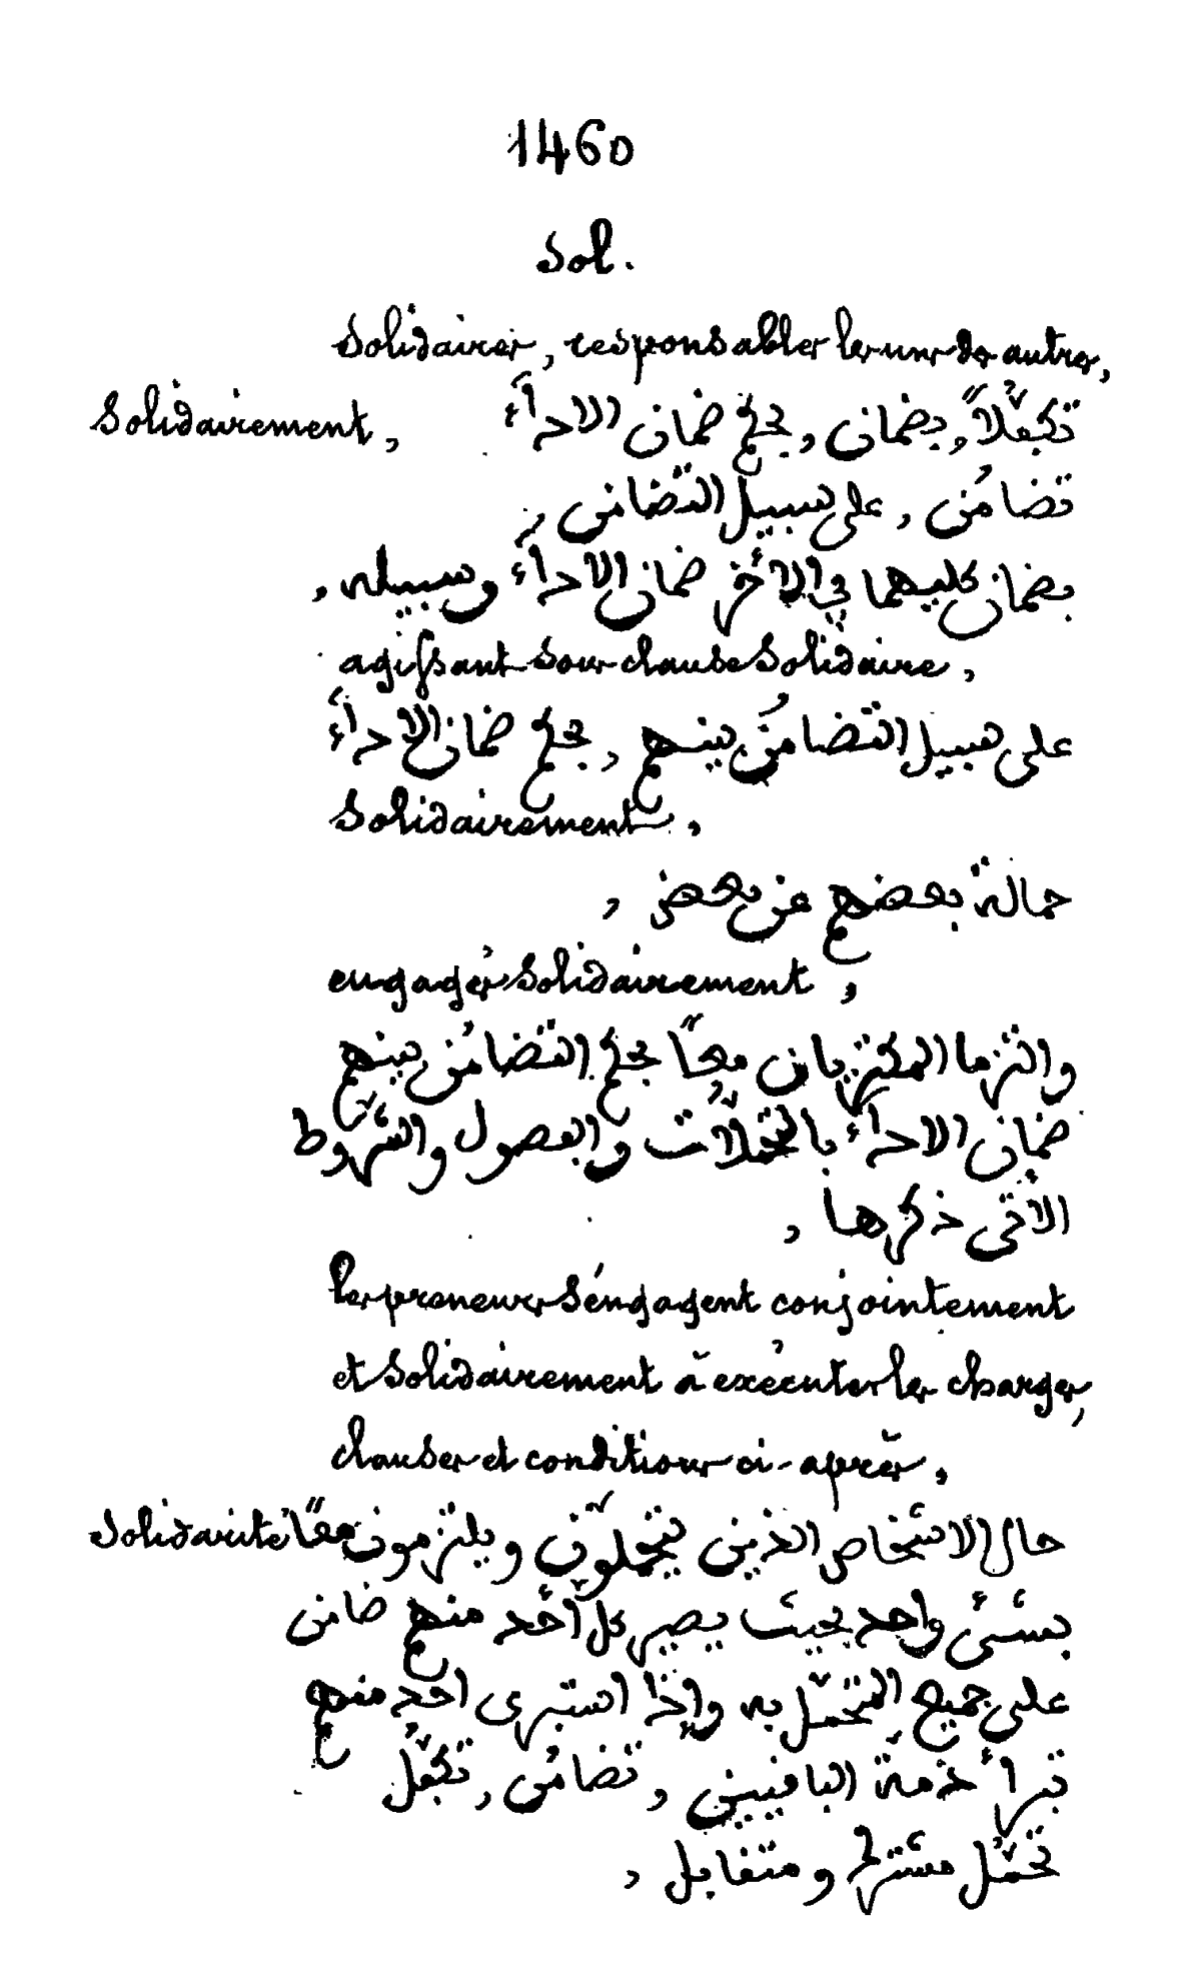 1460
Sol.
Solidaires, responsables les uns des autres,
Solidairement, تكفّلاً, بضمان, بحكم ضمان الاداء
تضامُن, على سبيل التضامن,
بضمان كليهما في الأخر ضمان الاداء وسبيله,
agissant sous clause solidaire,
على سبيل التضامُن بينهم, بحكم ضمان الاداء
Solidairement,
حمالة بعضهم عن بعض,
engager solidairement,
والتزما المكتريان معاً بحكم التضامُن بينهم
ضمان الاداء بالتحمّلات والفصول والشروط
الأتى ذكرها,
les preneurs s'engagent conjointement
et solidairement à exécuter les charges,
clauses et conditions ci-après,
Solidarité حال الاشخاص الذين يتحمّلون ويلتزمون معاً
بشئ واحد بحيث يصير كل أحد منهم ضامن
على جميع المتحمّل به وإذا استبرى احد منهم
تبرأ ذمة الباقيين, تضامُن, تكفّل
تحمّل مشترك ومتقابل,